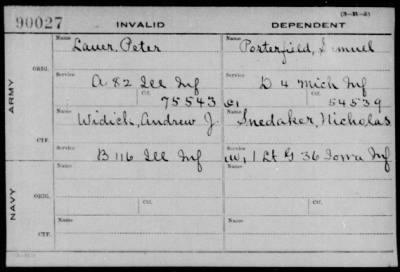 (3-11-3)
90027 INVALID DEPENDENT
Name Name
Lauer, Peter Porterfield, Simuel
ORIG. Service Service
A 82 Ill Inf D 4 Mich Inf
Ctf. 75543 C1 Ctf. 54539
ARMY
Name Name
Widick, Andrew J. Snedaker, Nicholas
CTF. Service Service
B 116 Ill Inf (W) 1 Lt G 36 Iowa Inf
Name Name
ORIG.
Ctf. Ctf.
NAVY
Name Name
CTF.